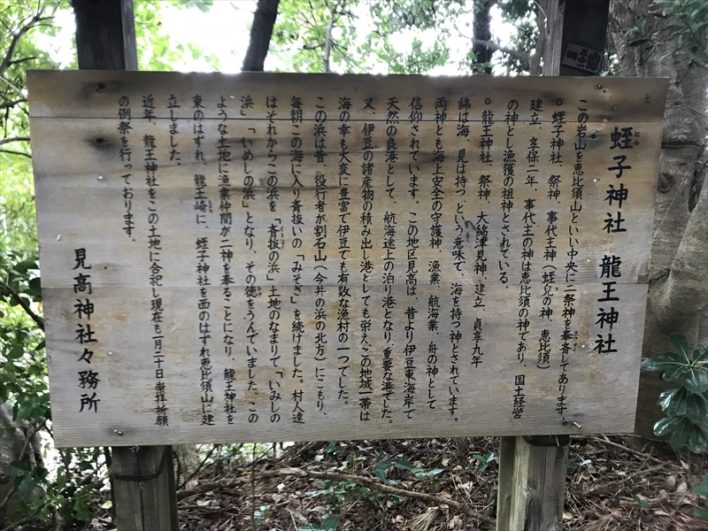 蛭子神社 龍王神社
この岩山を恵比須山といい中央に二祭神を奉斉してあります。
○ 蛭子神社、祭神、事代主神(蛭児の神、恵比須)
建立、享保二年、事代主の神は恵比須の神であり、国土経営
の神とし漁獲の祖神とされている。
○ 龍王神社、祭神、大綿津見神、建立、貞享九年
綿は海、見は持つ、という意味で、海を持つ神とされています。
両神とも海上安全の守護神、漁業、航海業、舟の神として
信仰されています。この地区見高は、昔より伊豆東海岸で
天然の良港として、航海途上の泊り港となり、重要な港でした。
又、伊豆の諸産物の積み出し港としても栄え、この地域一帯は
海の幸も大変に豊富で伊豆でも有数な漁村の一つでした。
この浜は昔、役行者が割石山(今井の浜の北方)にこもり、
毎朝この海に入り斉抜いの「みそぎ」を続けました。村人達
はそれからこの浜を「斉抜の浜」土地のなまりで、「いみしの
浜」「いめしの浜」となり、その徳をうんでいました。この
ような土地に漁業仲間が二神を奉ることになり、龍王神社を
東のはずれ、龍王崎に、蛭子神社を西のはずれ恵比須山に建
立しました。
近年、龍王神社をこの土地に合祀し現在も一月二十日崇拝祈願
の例祭を行っております。
見高神社々務所